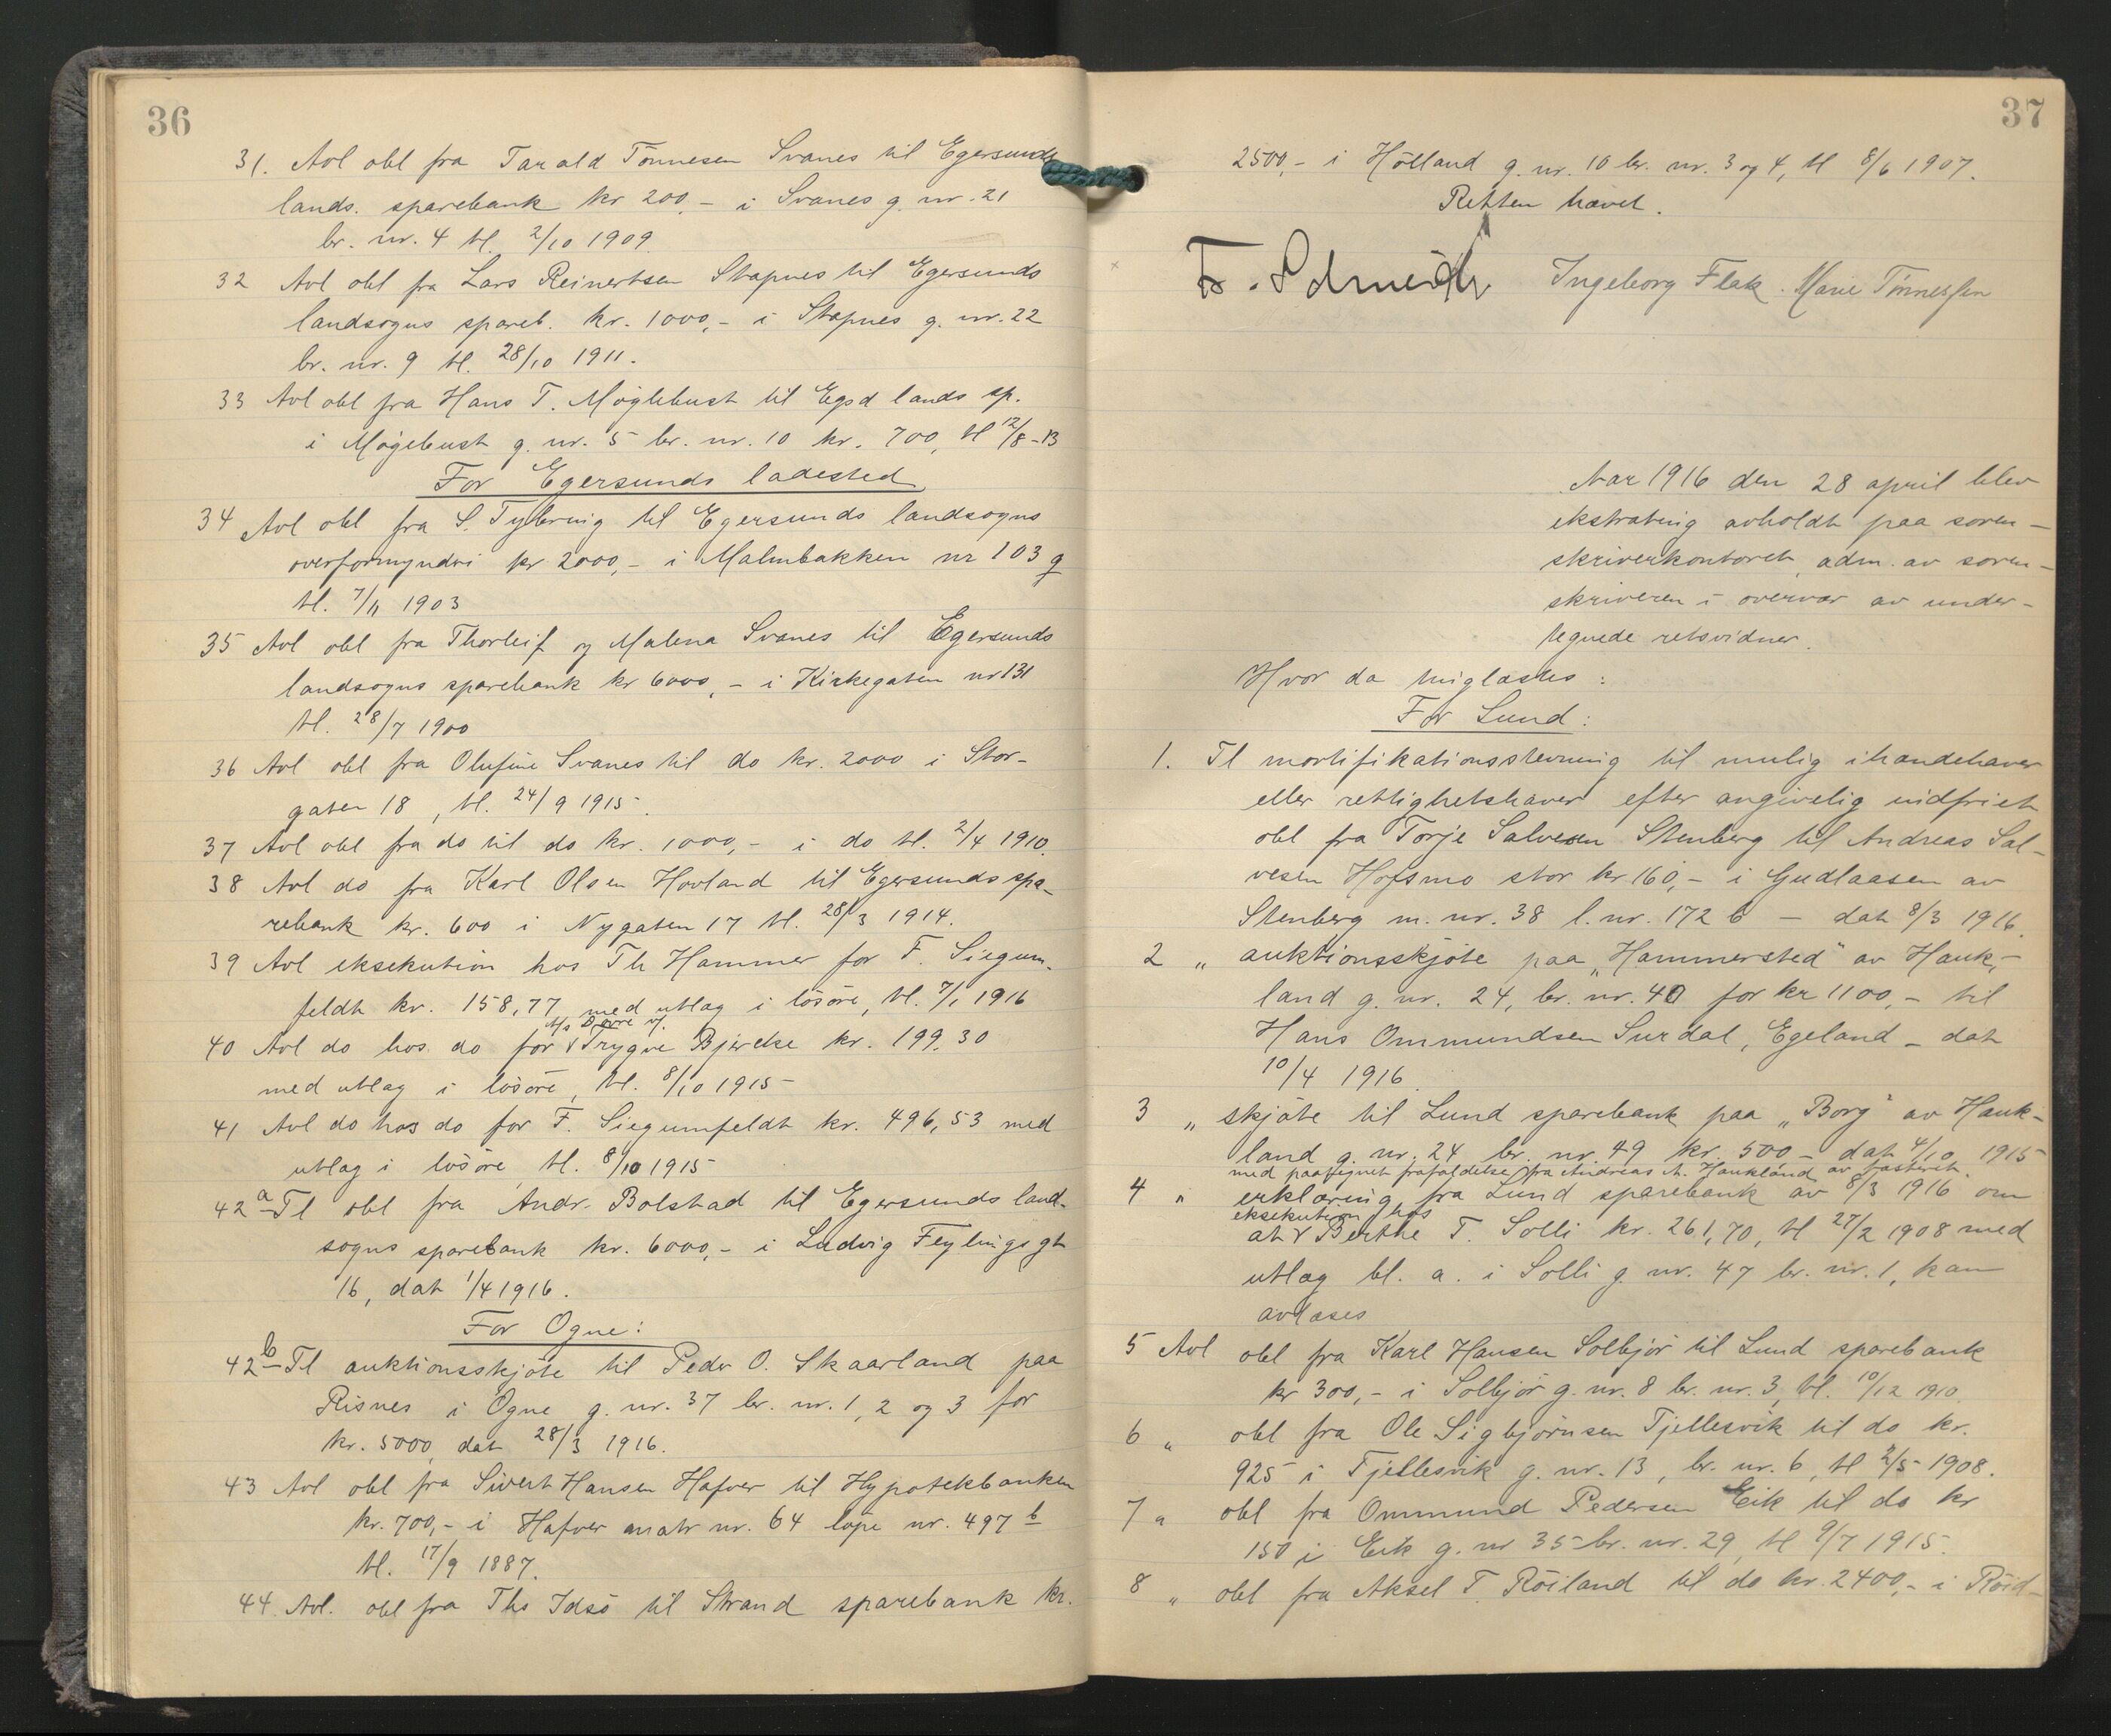 36
31. Avl obl fra Tarald Tønnesen Svanes til Egersunds
lands. sparebank kr 200,- i Svanes g. nr. 21
br. nr. 4 tl. 2/10 1909.
32 Avl obl fra Lars Reinertsen Stapnes til Egersunds
landsogns spareb. kr. 1000,- i Stapnes g. nr. 22
br. nr. 9 tl. 28/10 1911.
33 Avl obl fra Hans T. Møglebust til Egsd lands sp.
i Møgebust g. nr. 5 br. nr. 10 kr. 700, tl 12/8-13
For Egersunds ladested
34 Avl obl fra S. Tybring til Egersunds landsogns
overformynderi kr 2000,- i Malmbakken nr 103 g
tl. 7/11 1903
35 Avl obl fra Thorleif og Malena Svanes til Egersunds
landsogns sparebank kr 6000,- i Kirkegaten nr 131
tl. 28/7 1900
36 Avl obl fra Olufine Svanes til do kr. 2000 i Stor-
gaten 18, tl. 24/9 1915.
37 Avl obl fra do til do kr. 1000,- i do tl. 2/4 1910.
38 Avl do fra Karl Olsen Hovland til Egersunds spa-
rebank kr. 600 i Nygaten 17 tl. 28/3 1914.
39 Avl eksekution hos Th Hammer for F. Siegum-
feldt kr. 158,77 med utlag i løsøre, tl. 7/1 1916
40 Avl do hos do for Trygve Bjercke kr. 199.30
med utlag i løsøre, tl. 8/10 1915
41 Avl do hos do for F. Siegumfeldt kr. 496,53 med
utlag i løsøre tl. 8/10 1915
42 a Tl obl fra Andr. Bolstad til Egersunds land-
sogns sparebank kr. 6000,- i Ludvig Feylings gt
16, dat 1/4 1916.
For Ogne:
42 b Tl auktionsskjøte til Peder O. Skaarland paa
Risnes i Ogne g. nr. 37 br. nr. 1, 2 og 3 for
kr. 5000, dat 28/3 1916.
43 Avl obl fra Sivert Hansen Hafver til Hypotekbanken
kr. 700,- i Hafver matr nr. 64 løpe nr. 497 b
tl. 17/9 1887.
44. Avl. obl fra Ths Idsø til Strand sparebank kr.
37
2500,- i Hølland g. nr. 10 br. nr. 3 og 4, tl 8/6 1907.
Retten hævet.
Ingeborg Flak. Marie Tønnessen
Aar 1916 den 28 april blev
ekstrating avholdt paa soren-
skriverkontoret, adm. av soren-
skriveren i overvær av under-
tegnede retsvidner.
Hvor da tinglæstes:
For Lund:
1. Tl mortifikationsstevning til mulig ihændehaver
eller rettighetshaver efter angivelig indfriet
obl fra Torje Salvesen Stenberg til Andreas Sal-
vesen Hofsmo stor kr 160,- i Gudlaasen av
Stenberg m. nr. 38 l. nr. 172 b - dat 8/3 1916.
2 " auktionsskjøte paa "Hammersted" av Hauk-
land g. nr. 24, br. nr. 40 for kr 1100,- til
Hans Ommundsen Surdal, Egeland - dat
10/4 1916.
3 " skjøte til Lund sparebank paa "Borg" av Hauk-
land g. nr. 24 br. nr. 49 kr. 500 - dat 4/10 1915
med paategnet frafaldelse fra Andreas A. Haukland av
4 " erklæring fra Lund sparebank av 8/3 1916 om
eksekution hos
at Berthe T. Solli kr. 261,70, tl 27/2 1908 med
utlæg bl. a. i Solli g nr. 47 br. nr. 1, kan
avlæses
5 Avl obl fra Karl Hansen Solbjør til Lund sparebank
kr 300,- i Solbjør g. nr. 8 br. nr. 3, tl. 10/12 1910.
6 " obl fra Ole Sigbjørnsen Tjellesvik til do kr.
925 i Tjellesvik g. nr. 13, br. nr. 6, tl 2/5 1908.
7 " obl fra Ommund Pedersen Eik til do kr
150 i Eik g. nr 35 br. nr. 29, tl 9/7 1915.
8 " obl fra Aksel T. Røiland til do kr. 2400,- i Røid-